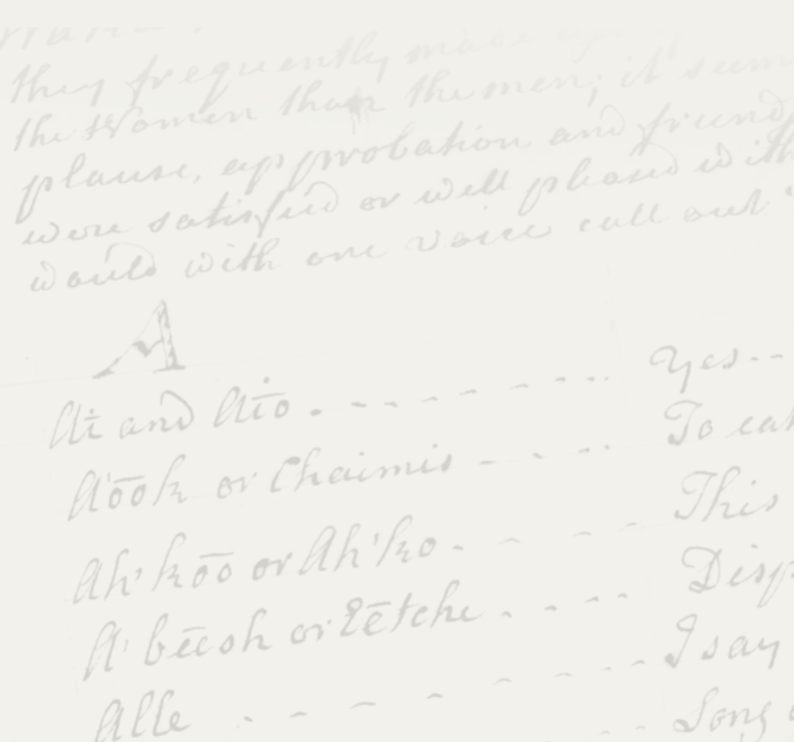 they frequently made
the Women than the men; it seem
plause, approbation and friend
were satisfied or well pleased with
would with one voice call out
A
Ai and Aīo . - - - - - - Yes - -
A'ōōk or Chaimis - - - - To eat
Ah' kōō or Ah'ko - - - - This
A' bēēsh or Eētche . - - - - Disp
Alle . - - - - - - I say
Song